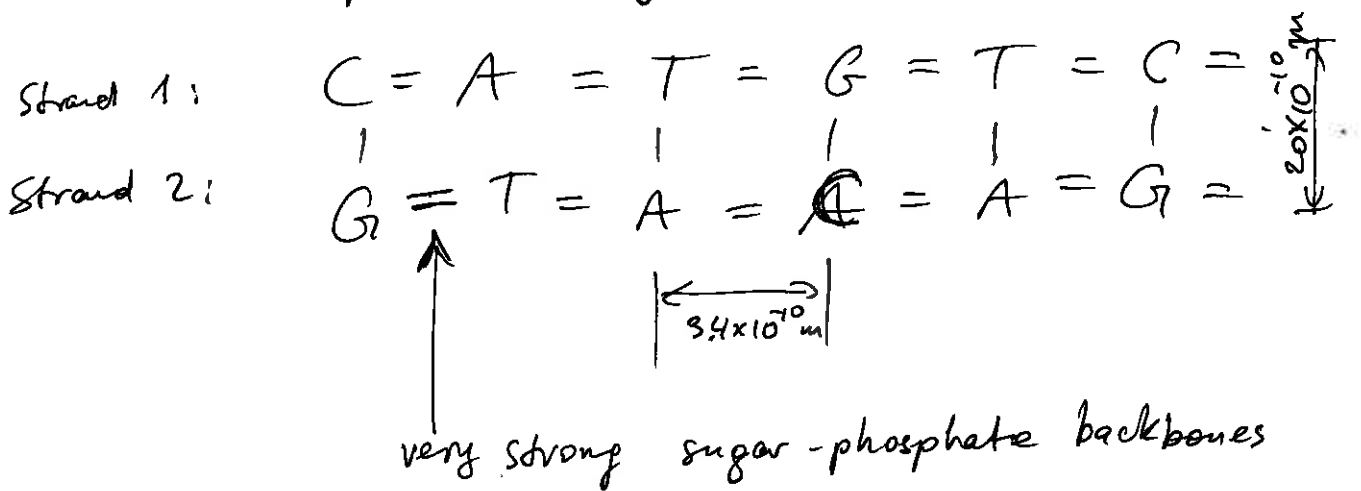 Strand 1: C = A = T = G = T = C =
20×10⁻¹⁰ m
Strand 2: G = T = A = C = A = G =
3,4×10⁻¹⁰ m
very strong sugar-phosphate backbones